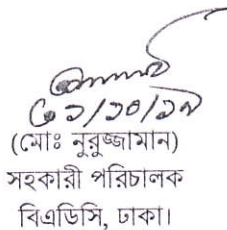 ৩১/১০/১৯
(মোঃ নুরুজ্জামান)
সহকারী পরিচালক
বিএডিসি, ঢাকা।